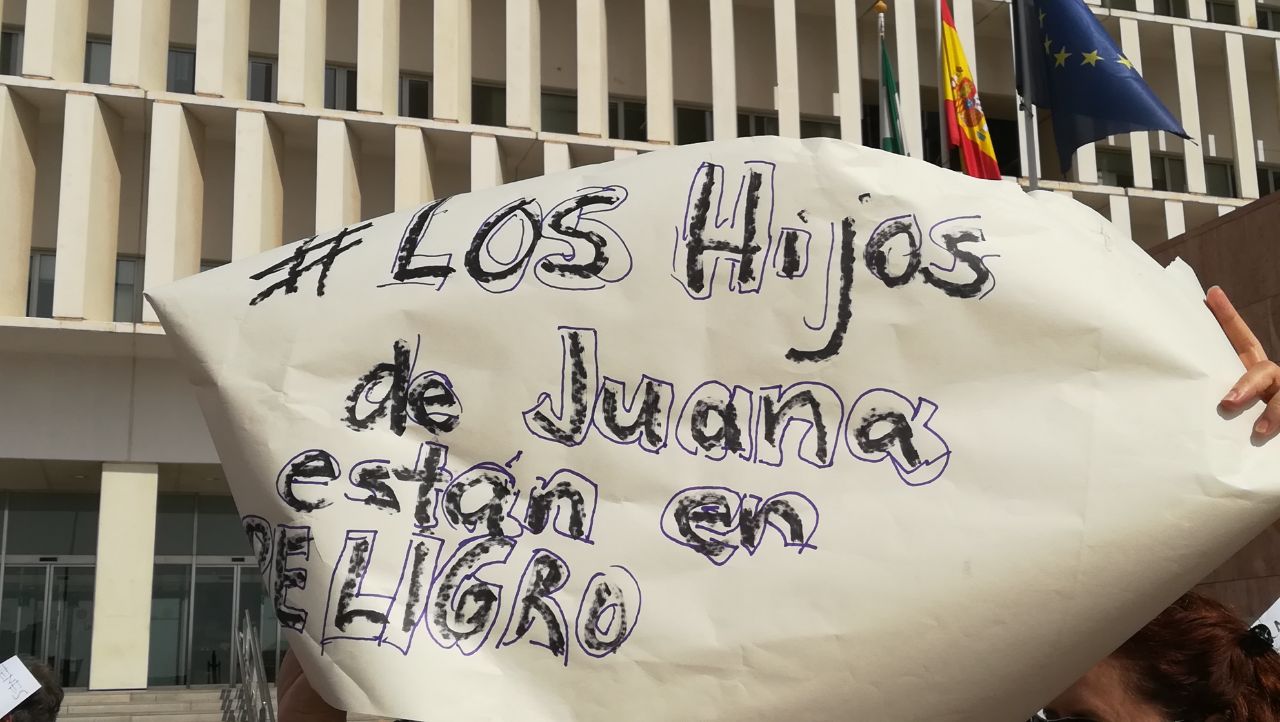 # LOS Hijos
de Juana
están en
PELIGRO